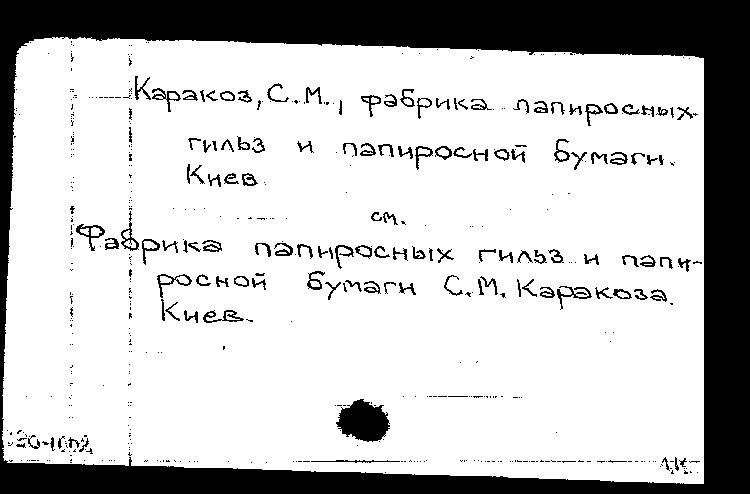 Каракоз, С.М., фабрика папиросных
гильз и папиросной бумаги.
Киев
см.
Фабрика папиросных гильз и папи-
росной бумаги С.М. Каракоза.
Киев.